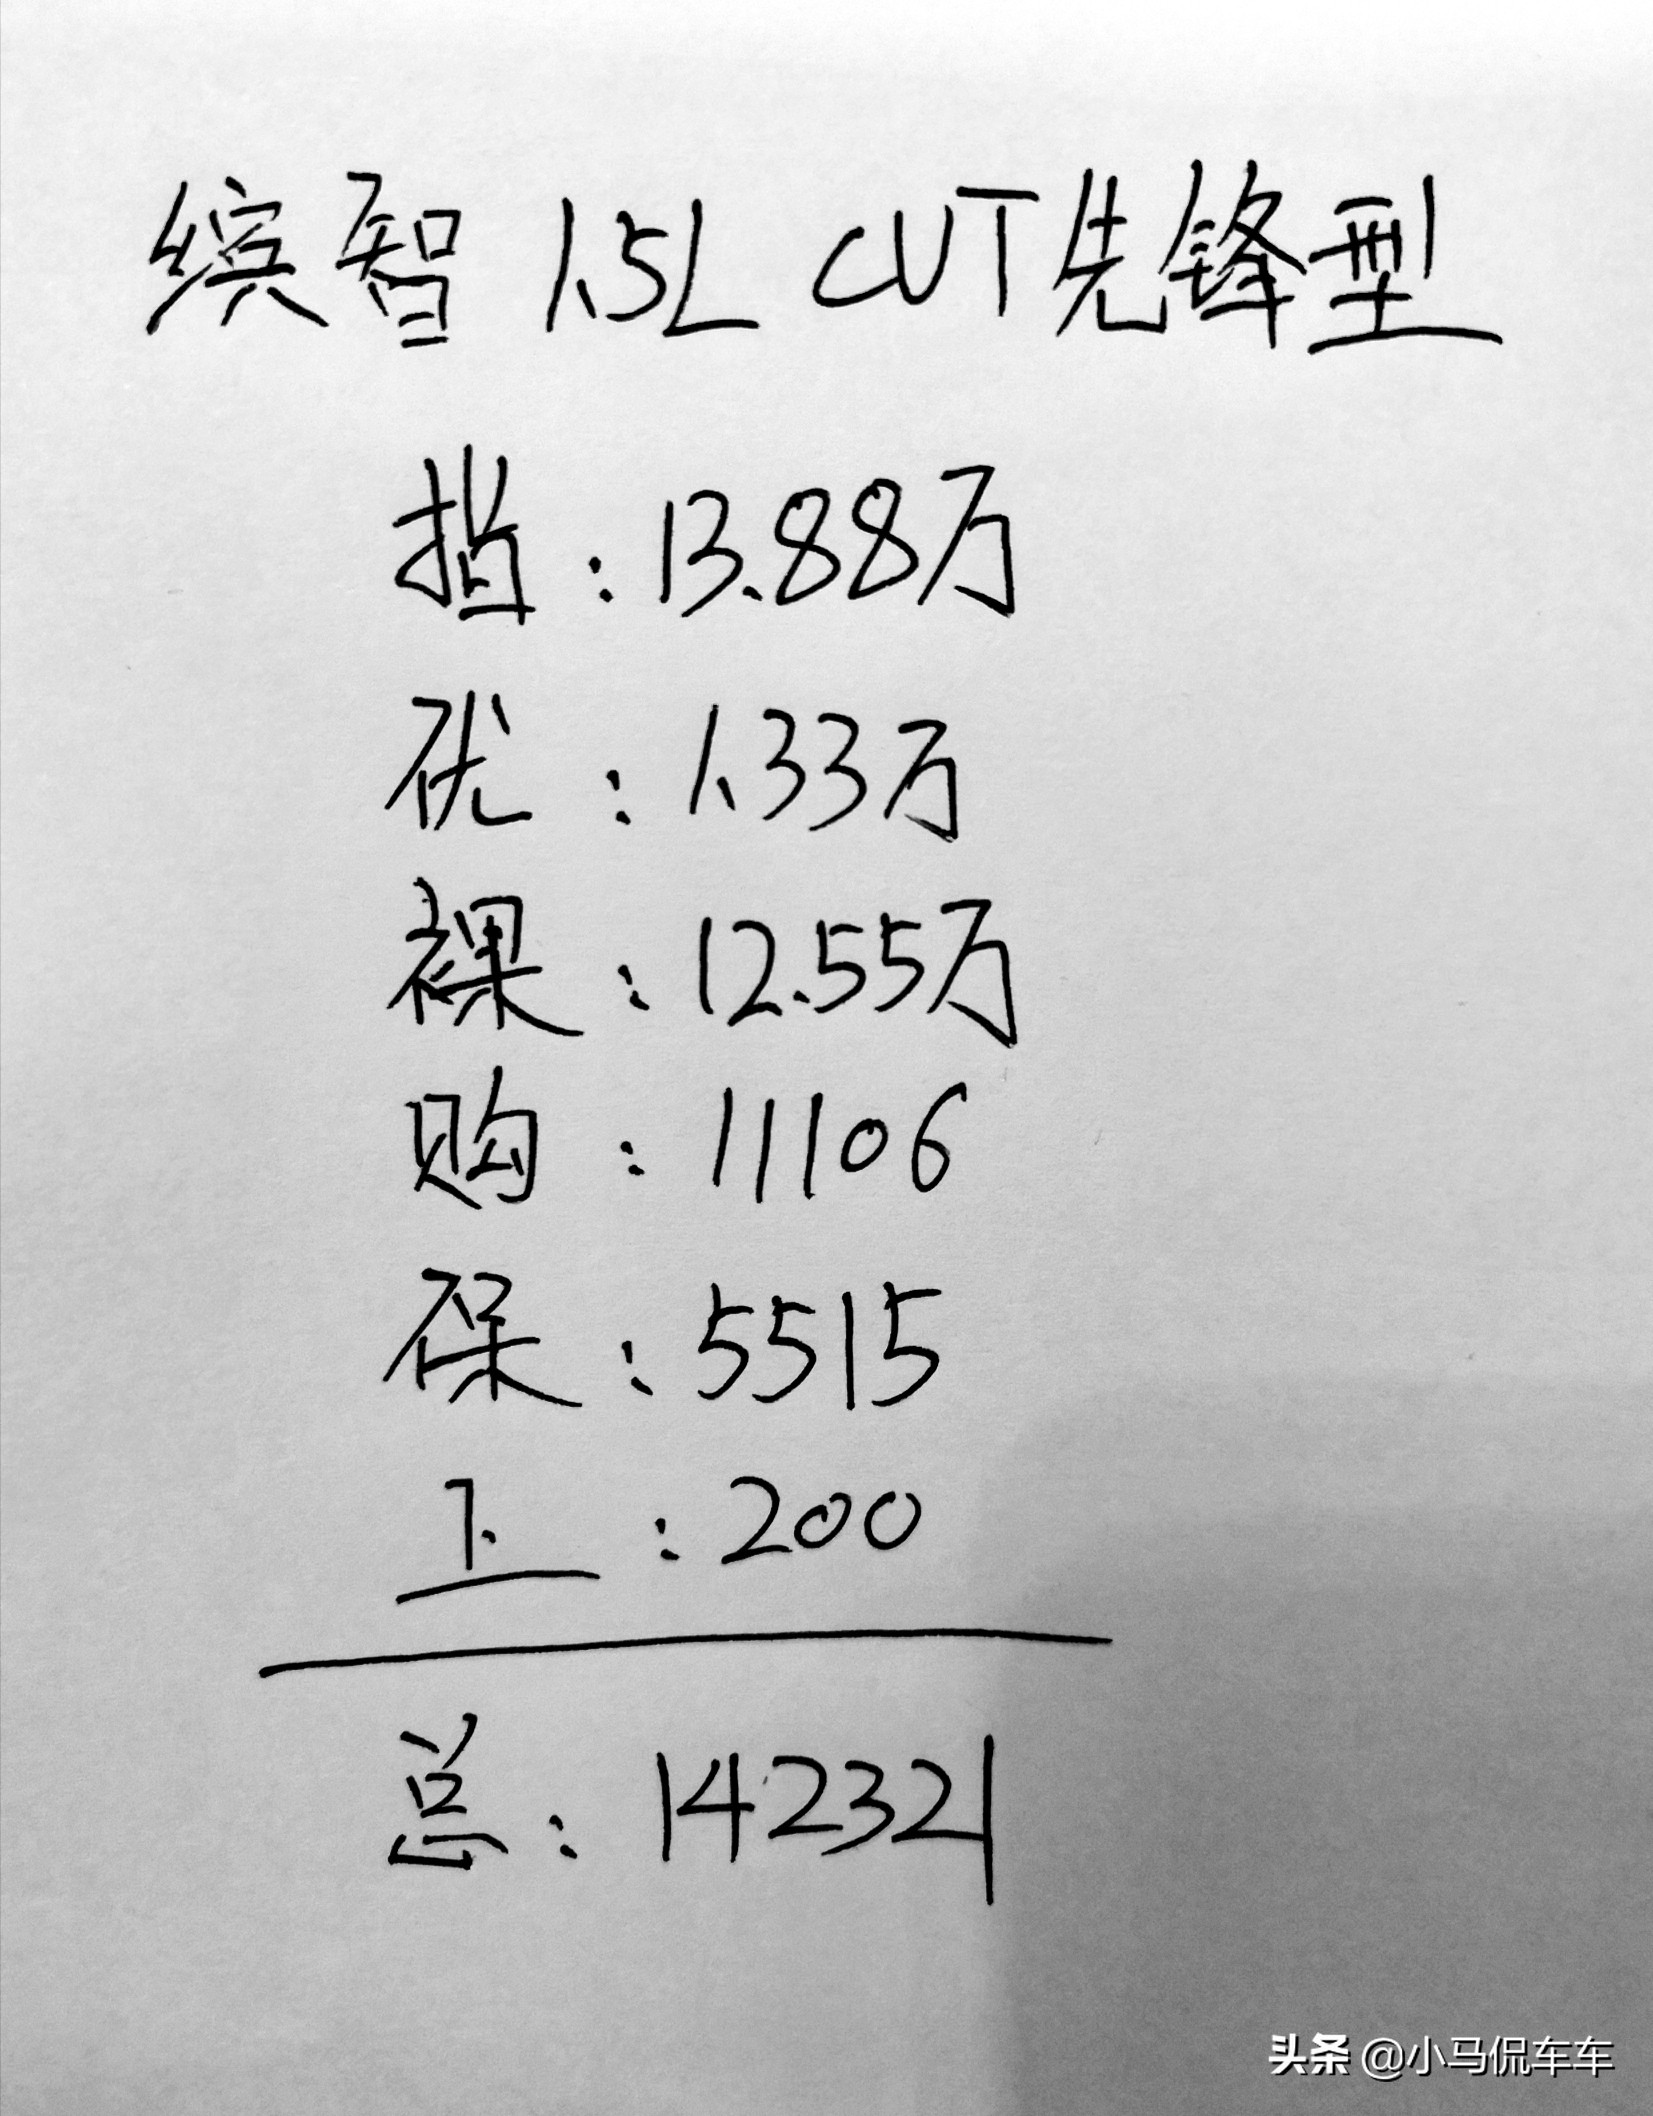 缤智 1.5L CUT先锋型
指：13.88万
优：1.33万
裸：12.55万
购：11106
保：5515
上：200
总：142321
头条 @小马侃车车